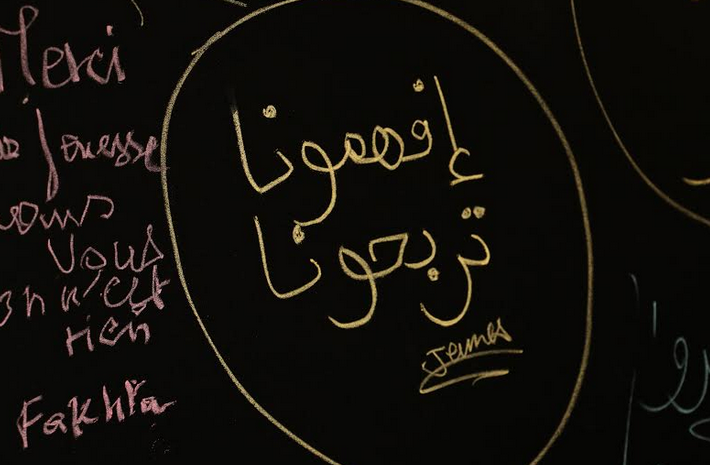 Merci
Jouesse
Vous
on n'est
rien
Fakhita
إفهمونا
تربحونا
Jeunes